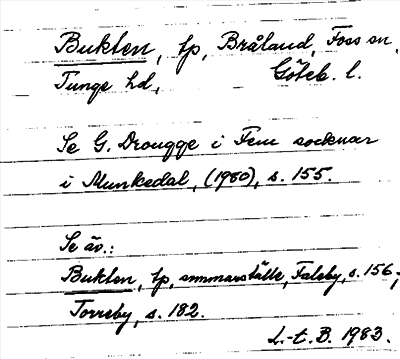 Bukten, lp, Bråland, Foss sn,
Tunge hd, Göteb. l.
Se G. Drougge i Fem socknar
i Munkedal, (1980), s. 155.
Se äv.:
Bukten, lp, sommarställe, Faleby, s. 156,
Torreby, s. 182.
L.-t. B. 1983.